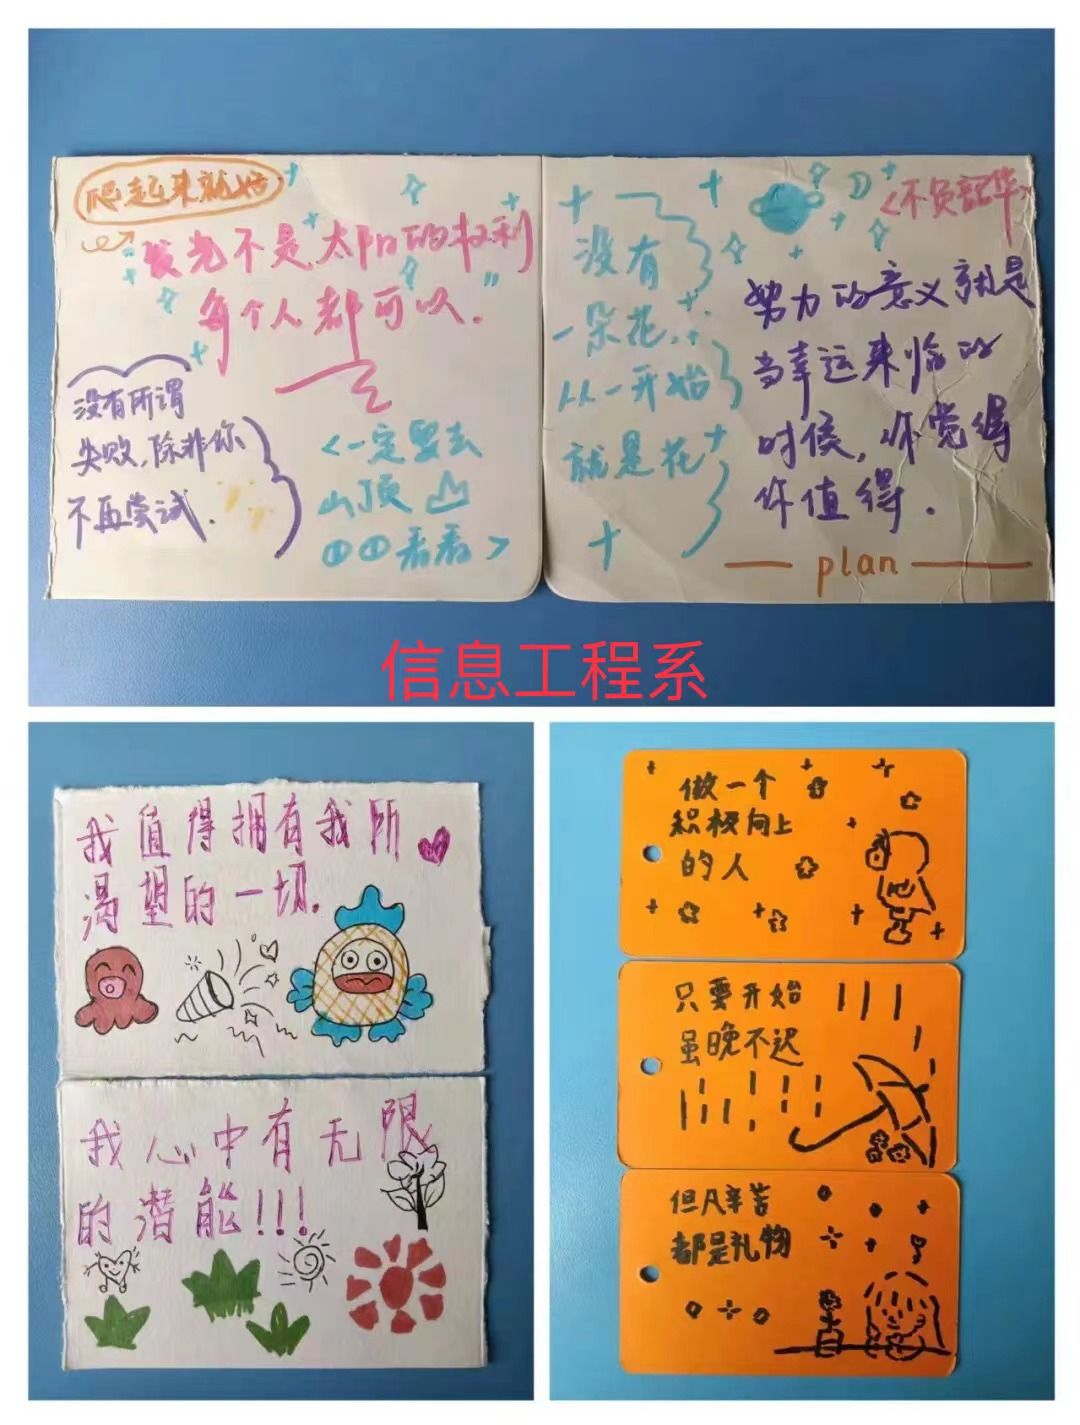 爬起来就好
“发光不是太阳的权利
每个人都可以.”
没有所谓
失败,除非你
不再尝试.
<一定要去
山顶
看看>
没有
一朵花,
从一开始
就是花
<不负韶华>
努力的意义就是
当幸运来临的
时候,你觉得
你值得.
plan
信息工程系
我值得拥有我所
渴望的一切.
我心中有无限
的潜能!!!
做一个
积极向上
的人
只要开始
虽晚不迟
但凡辛苦
都是礼物